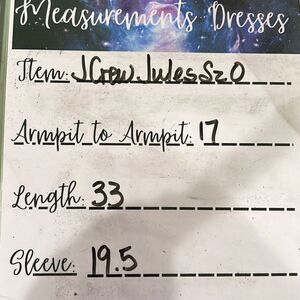 Measurements Dresses
Item: J Crew Jules Sz 0
Armpit to Armpit: 17
Length: 33
Sleeve: 19.5